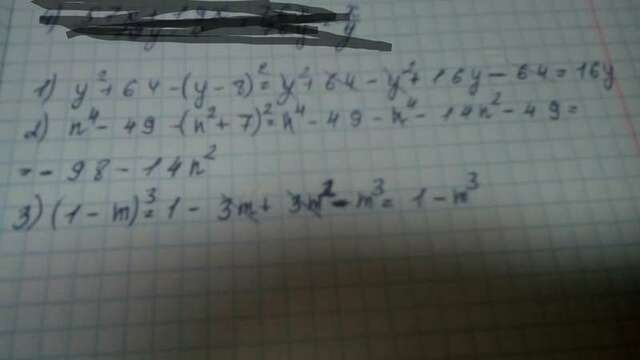 1) y²+64-(y-8)²=y²+64-y²+16y-64=16y
2) n⁴-49-(n²+7)²=n⁴-49-n⁴-14n²-49=
=-98-14n²
3) (1-m)³=1-3m+3m²-m³=1-m³